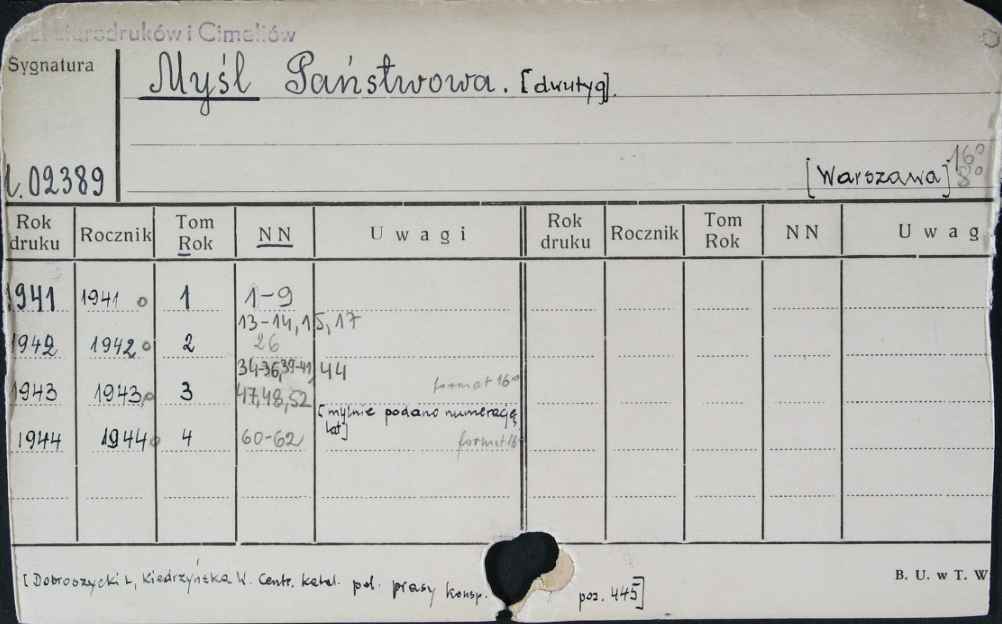 Starodruków i Cimeliów
Sygnatura
Myśl Państwowa. [dwutyg].
16°
02389
[Warszawa] 8°
Rok druku Rocznik Tom Rok NN Uwagi Rok druku Rocznik Tom Rok NN Uwag
1941 1941 o 1 1-9
13-14, 15, 17
1942 1942 o 2 26
34-36, 39-41, 44
format 16°
1943 1943, o 3 47, 48, 52
[mylnie podano numerację
lat]
1944 1944 o 4 60-62 format 16°
[Dobroszycki L, Kiedrzyńska W. Centr. katal. pol. prasy konsp. poz. 445]
B. U. w T. W